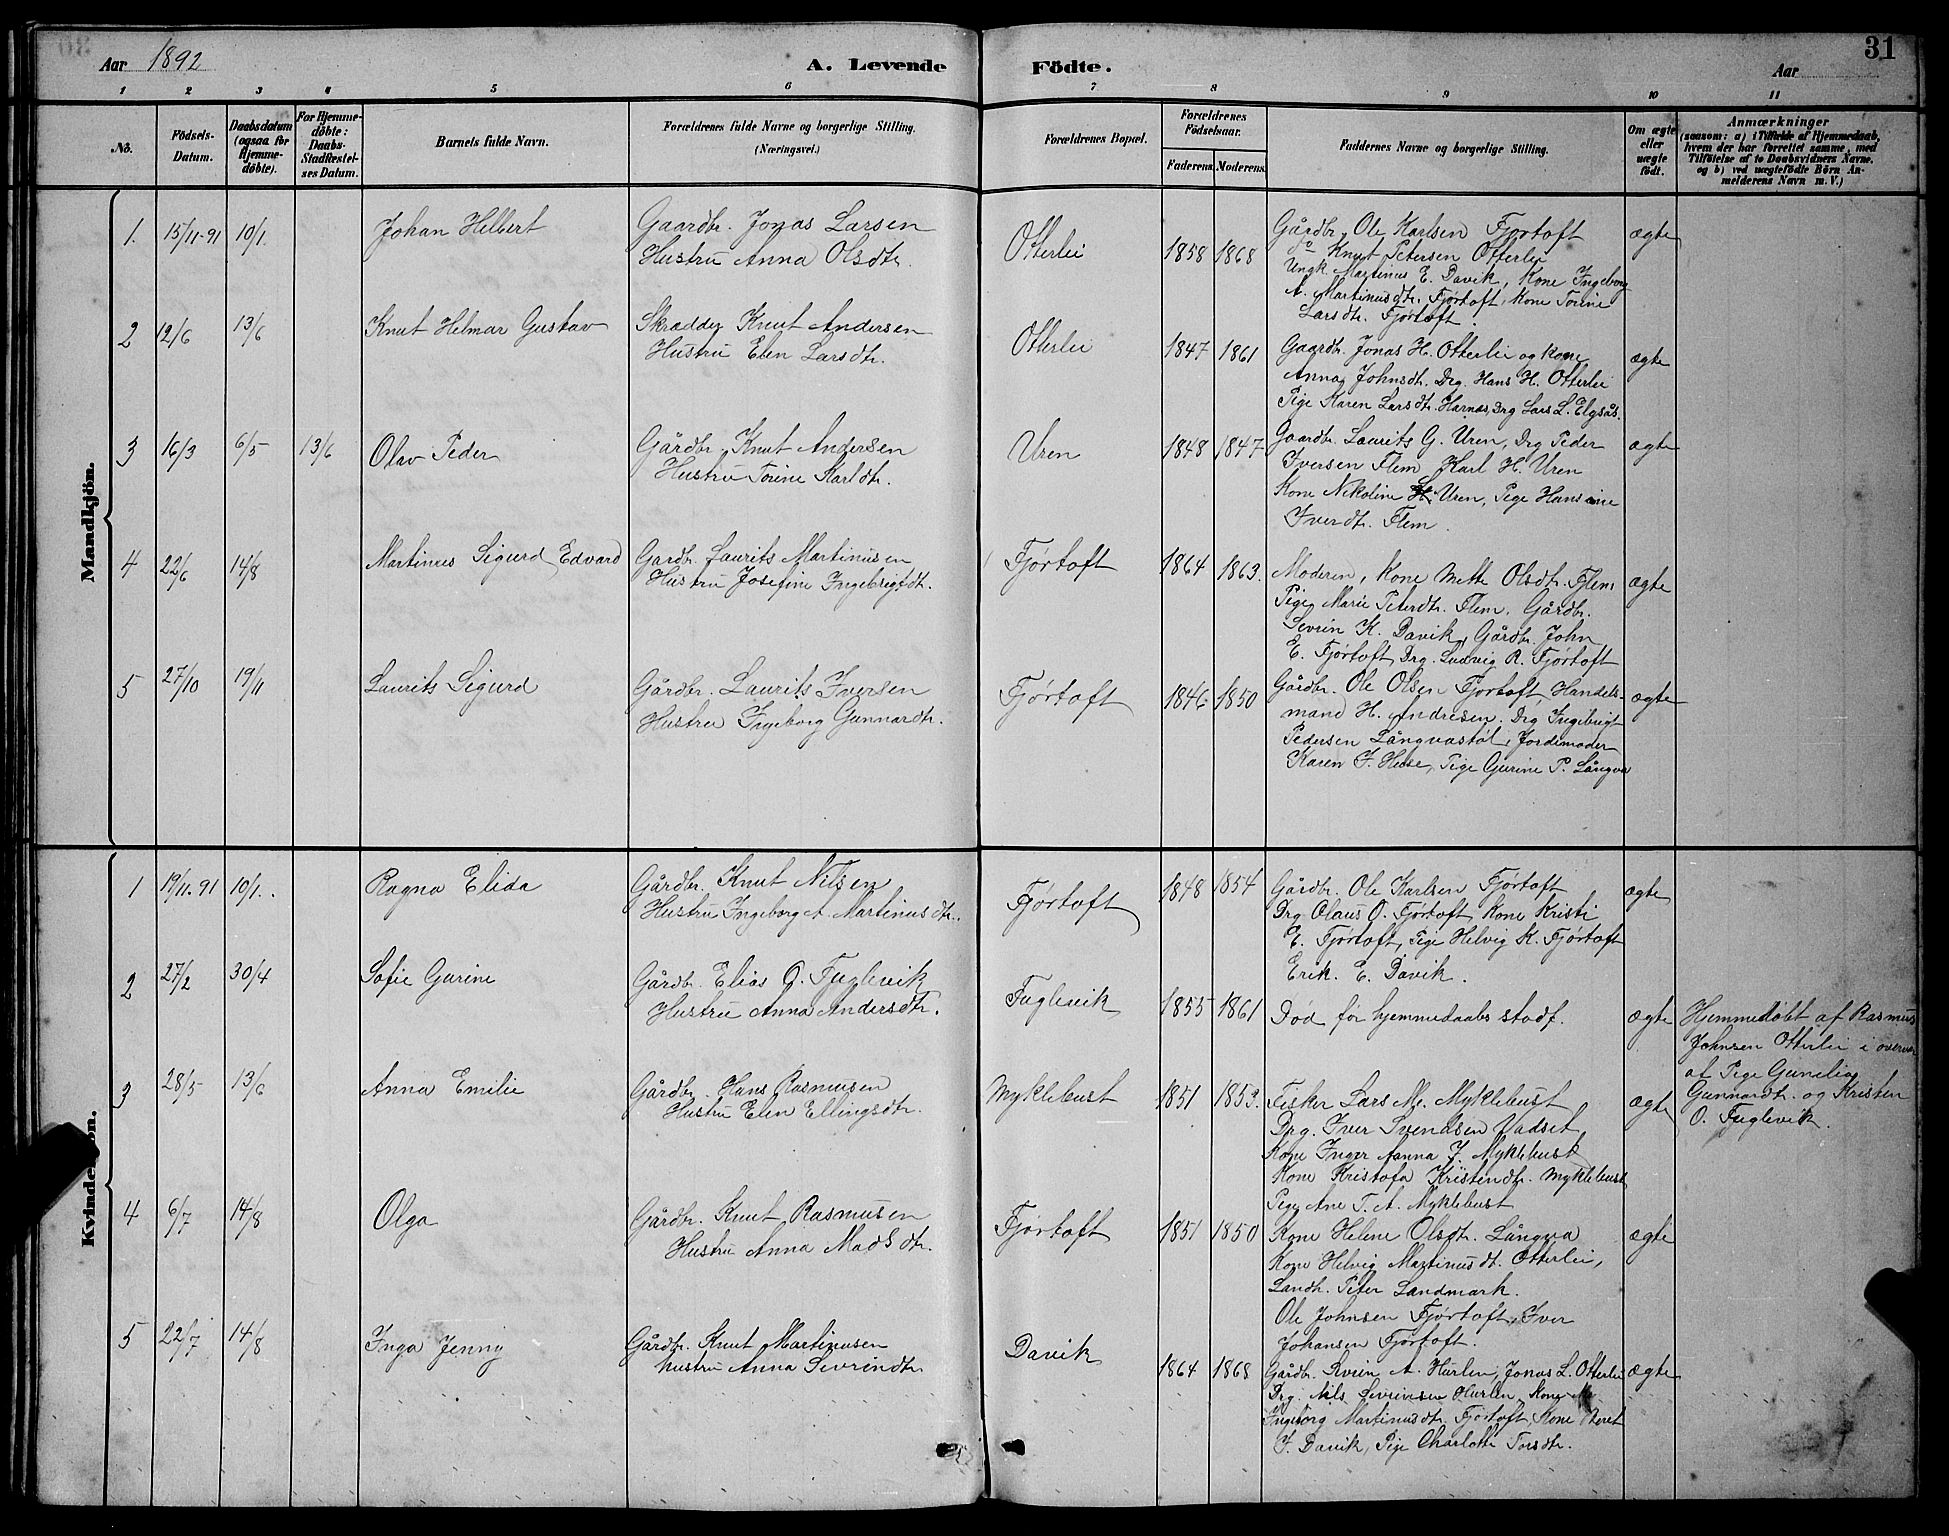 Aar 1892
A. Levende Födte.
31
Aar
1 2 3 4 5 6 7 8 9 10 11
No.
Födsels-Datum.
Daabsdatum (ogsaa for Hjemme-döbte).
For Hjemme-döbte: Daabs-Stadfæstel-ses Datum.
Barnets fulde Navn.
Forældrenes fulde Navne og borgerlige Stilling.
(Næringsvei.)
Forældrenes Bopæl.
Forældrenes Födselsaar.
Faderens. Moderens.
Faddernes Navne og borgerlige Stilling.
Om ægte eller uægte födt.
Anmærkninger
(saasom: a) i Tilfælde af Hjemmedaab,
hvem der har forrettet samme, med
Tilföielse af to Daabsvidners Navne,
og b) ved uægtefödte Börn An-
melderens Navn m. V.)
Mandkjön.
1. 15/11-91 10/1. Johan Hilbert
Gaardbr. Jonas Larsen
Hustru Anna Olsdtr.
Otterlei 1858 1868
Gårdbr. Ole Karlsen Fjørtoft
do Knut Petersen Otterlei
Ungk. Martinus E. Davik, Kone Ingeborg
A. Martinusdtr. Fjørtoft, Kone Torine
Larsdtr. Fjørtoft.
ægte
2 12/6 13/6 Knut Helmar Gustav
Skrædder Knut Andersen
Hustru Elen Larsdtr.
Otterlei 1847 1861
Gaardbr. Jonas H. Otterlei og Kone
Anna Johnsdtr. Drg. Hans H. Otterlei
Pige Karen Larsdtr. Harnæs, Drg Lars L. Elgsås.
ægte
3 16/3 6/5 13/6 Olav Peder
Gårdbr. Knut Andersen
Hustru Torine Karldtr.
Uren 1848 1847
Gaardbr. Laurits G. Uren, Drg Peder
Iversen Flem, Karl H. Uren
Kone Nikoline Uren, Pige Hansine
Iverdtr. Flem.
ægte
4 22/6 14/8 Martinus Sigurd Edvard
Gardbr. Laurits Martinusen
Hustru Josefine Ingebrigtdtr.
Fjørtoft 1864 1863.
Moderen, Kone Mette Olsdtr. Flem
Pige Marie Peterdtr. Flem, Gårdbr.
Sevrin K. Davik, Gårdbr. John
E. Fjørtoft, Drg. Ludvig R. Fjørtoft
ægte
5 27/10 19/11 Laurits Sigurd
Gårdbr. Laurits Iversen
Hustru Ingeborg Gunnardtr.
Fjørtoft 1846 1850
Gårdbr. Ole Olsen Fjørtoft, Handels-
mand H. Andresen. Drg Ingebrigt
Pedersen Långvastøl, Jordemoder
Karen J. Huse, Pige Gurine P. Långva
ægte
Kvinde ön.
1 19/11.91 10/1. Ragna Elida
Gårdbr. Knut Nilsen
Hustru Ingeborg A. Martinusdtr.
Fjørtoft 1848 1854
Gårdbr. Ole Karlsen Fjørtoft
Drg Olaus O. Fjørtoft, Kone Kristi
E. Fjørtoft, Pige Helvig K. Fjørtoft
Erik. E. Davik.
ægte
2 27/2 30/4 Sofie Gurine
Gårdbr. Elias O. Fuglevik
Hustru Anna Andersdtr.
Fuglevik 1855 1861
Død før hjemmedaabs stadf.
ægte
Hjemmedøbt af Rasmus
Johnsen Otterlei i overvær
af Pige Gunilia
Gunnardtr. og Kristen
O. Fuglevik.
3 28/5 13/6 Anna Emilie
Gårdbr. Hans Rasmusen
Hustru Elen Ellingsdtr.
Myklebust 1851 1853.
Fisker Lars M. Myklebust
Drg. Iver Svendsen Vadset
Kone Inger Aanna J. Myklebust
Kone Kristofa Kristendtr. Myklebust
Pige Ane T. A. Myklebust
ægte
4 6/7 14/8 Olga
Gårdbr. Knut Rasmusen
Hustru Anna Madsdtr.
Fjørtoft 1851 1850
Kone Helene Olsdtr. Långva
Kone Helvig Martinusdt. Otterlei,
Landh. Peter Landmark.
Ole Johnsen Fjørtoft, Iver
Johansen Fjørtoft.
ægte
5 22/7 14/8 Inga Jenny
Gårdbr. Knut Martinusen
hustru Anna Sevrindtr.
Davik 1864 1868
Gårdbr. A. Hurlen, Jonas L. Otterlei
Drg. Nils Sevrinsen Hurlen, Kone
Ingeborg Martinusdtr. Fjørtoft, Kone Beret
J. Davik, Pige Charlotte Torsdtr.
ægte